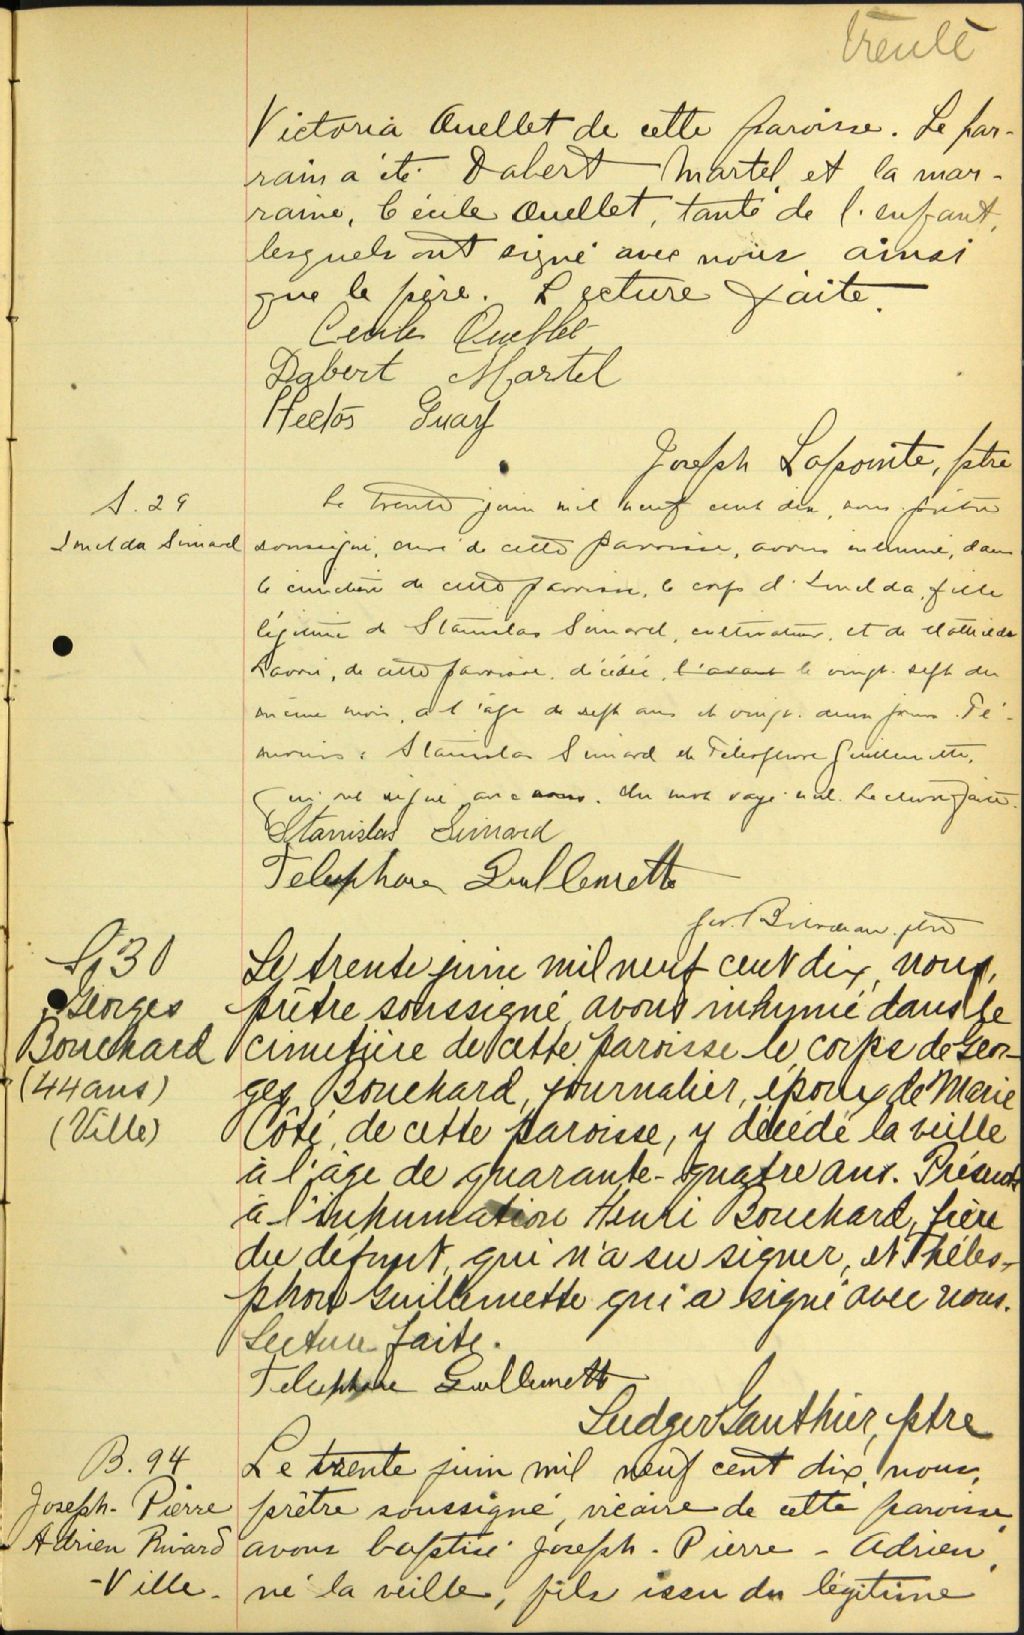 trente
Victoria Ouellet de cette paroisse. Le par-
rain a été Dabert Martel et la mar-
raine, Cécile Ouellet, tante de l'enfant,
lesquels ont signé avec nous ainsi
que le père. Lecture faite.
Cecile Ouellet
Dabert Martel
Hector
Joseph Lapointe, ptre
S. 29
Imelda Simard
Le trente juin mil neuf cent dix, nous prêtre
soussigné, curé de cette paroisse, avons inhumé, dans
le cimetière de cette paroisse, le corps d'Imelda, fille
légitime de Stanislas Simard, cultivateur, et de
de cette paroisse, décédée, l'avant le vingt-sept du
même mois, à l'âge de sept ans et vingt-deux jours. Té-
moins: Stanislas Simard et Télesphore Guillemette,
qui ont signé avec nous. Un mot rayé nul. Lecture faite.
Stanislas Simard
Telesphore Guillemette
ptre
S. 30
Georges
Bouchard
(44 ans)
(Ville)
Le trente juin mil neuf cent dix, nous,
prêtre soussigné, avons inhumé dans le
cimetière de cette paroisse le corps de Geor-
ges Bouchard, journalier, époux de Marie
Côté, de cette paroisse, y décédé la veille
à l'âge de quarante-quatre ans. Présents
à l'inhumation Henri Bouchard, frère
du défunt, qui n'a su signer, et Théles-
phore Guillemette qui a signé avec nous.
Lecture faite.
Telesphore Guillemette
Ludger Gauthier, ptre
B. 94
Joseph-Pierre
Adrien Rivard
-Ville-
Le trente juin mil neuf cent dix, nous,
prêtre soussigné, vicaire de cette paroisse
avons baptisé Joseph-Pierre-Adrien,
né la veille, fils issu du légitime